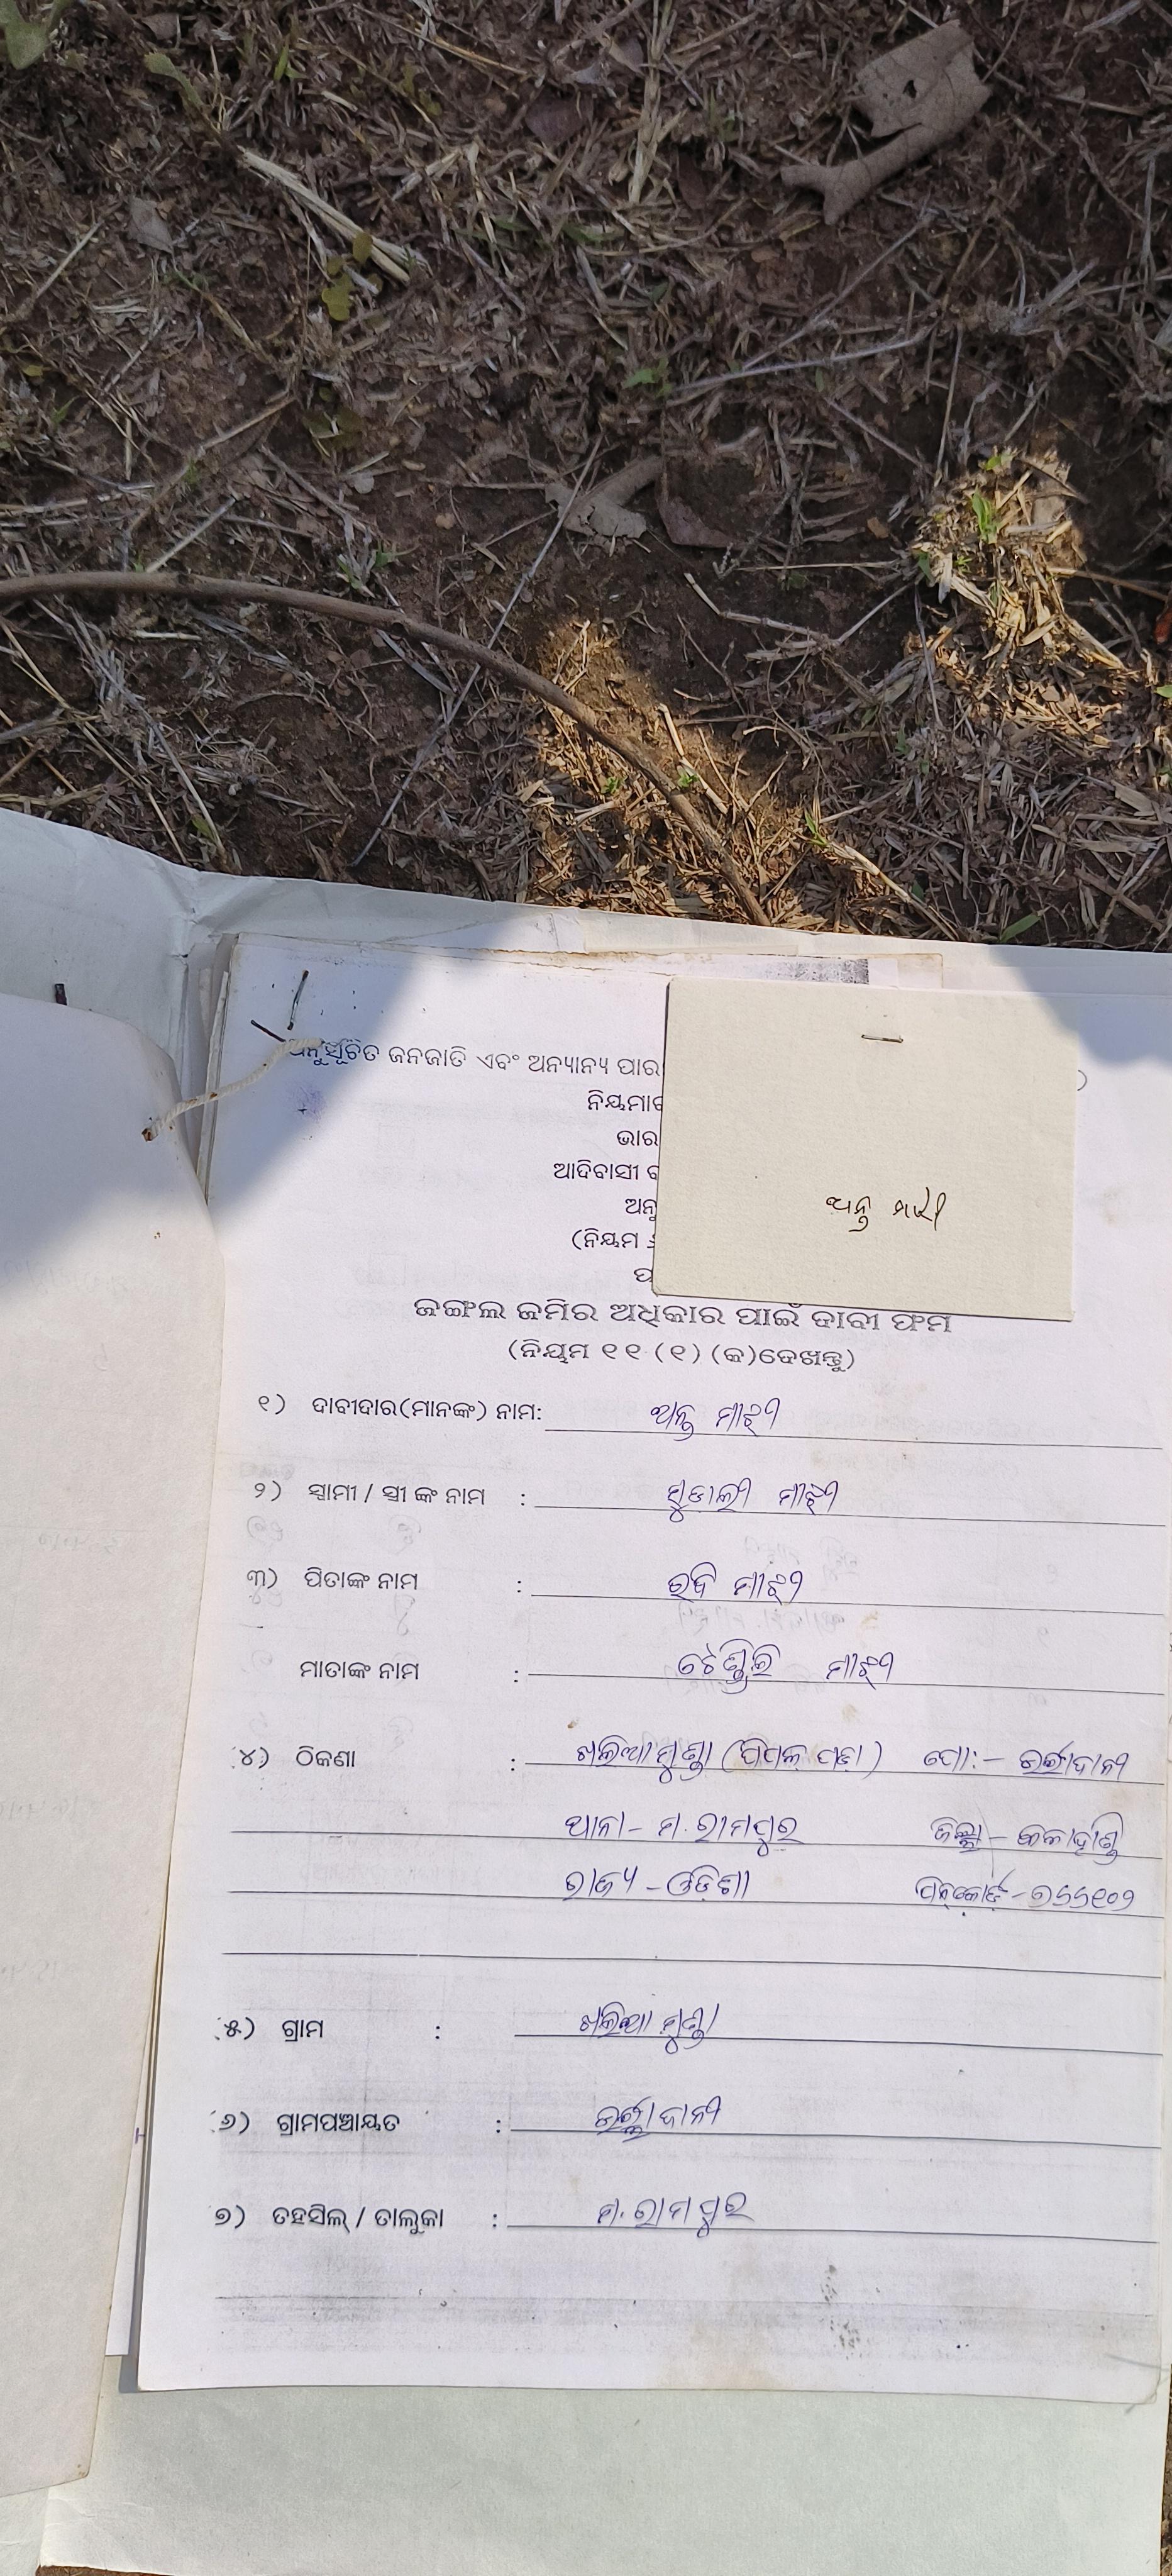 ଅନୁସୂଚିତ ଜନଜାତି ଏବଂ ଅନ୍ୟାନ୍ୟ ପାର
ନିୟମାବ
ଭାର
ଆଦିବାସୀ
ଅନୁ
(ନିୟମ
ଅନ୍ତ ମାଝୀ
ଜଙ୍ଗଲ ଜମିର ଅଧିକାର ପାଇଁ ଦାବୀ ଫର୍ମ
(ନିୟମ ୧୧ (୧) (କ)ଦେଖନ୍ତୁ)
୧) ଦାବୀଦାର(ମାନଙ୍କ) ନାମ: ଅନ୍ତ ମାଝୀ
୨) ସ୍ଵାମୀ / ସ୍ତ୍ରୀ ଙ୍କ ନାମ : ମାଝୀ
୩) ପିତାଙ୍କ ନାମ : ରବି ମାଝୀ
ମାତାଙ୍କ ନାମ : ମାଝୀ
୪) ଠିକଣା : ଖଲିଆମୁଣ୍ଡା (ପିପଲ୍ ପଡା) ପୋ:-
ଥାନା- ମ. ରାମପୁର ଜିଲ୍ଲା - କଳାହାଣ୍ଡି
ରାଜ୍ୟ - ଓଡିଶା ପିନ୍‌କୋଡ୍ - ୭୬୬୧୦୨
୫) ଗ୍ରାମ : ଖଲିଆ ମୁଣ୍ଡା
୬) ଗ୍ରାମପଞ୍ଚାୟତ :
୭) ତହସିଲ୍ / ତାଲୁକା : ମ. ରାମପୁର